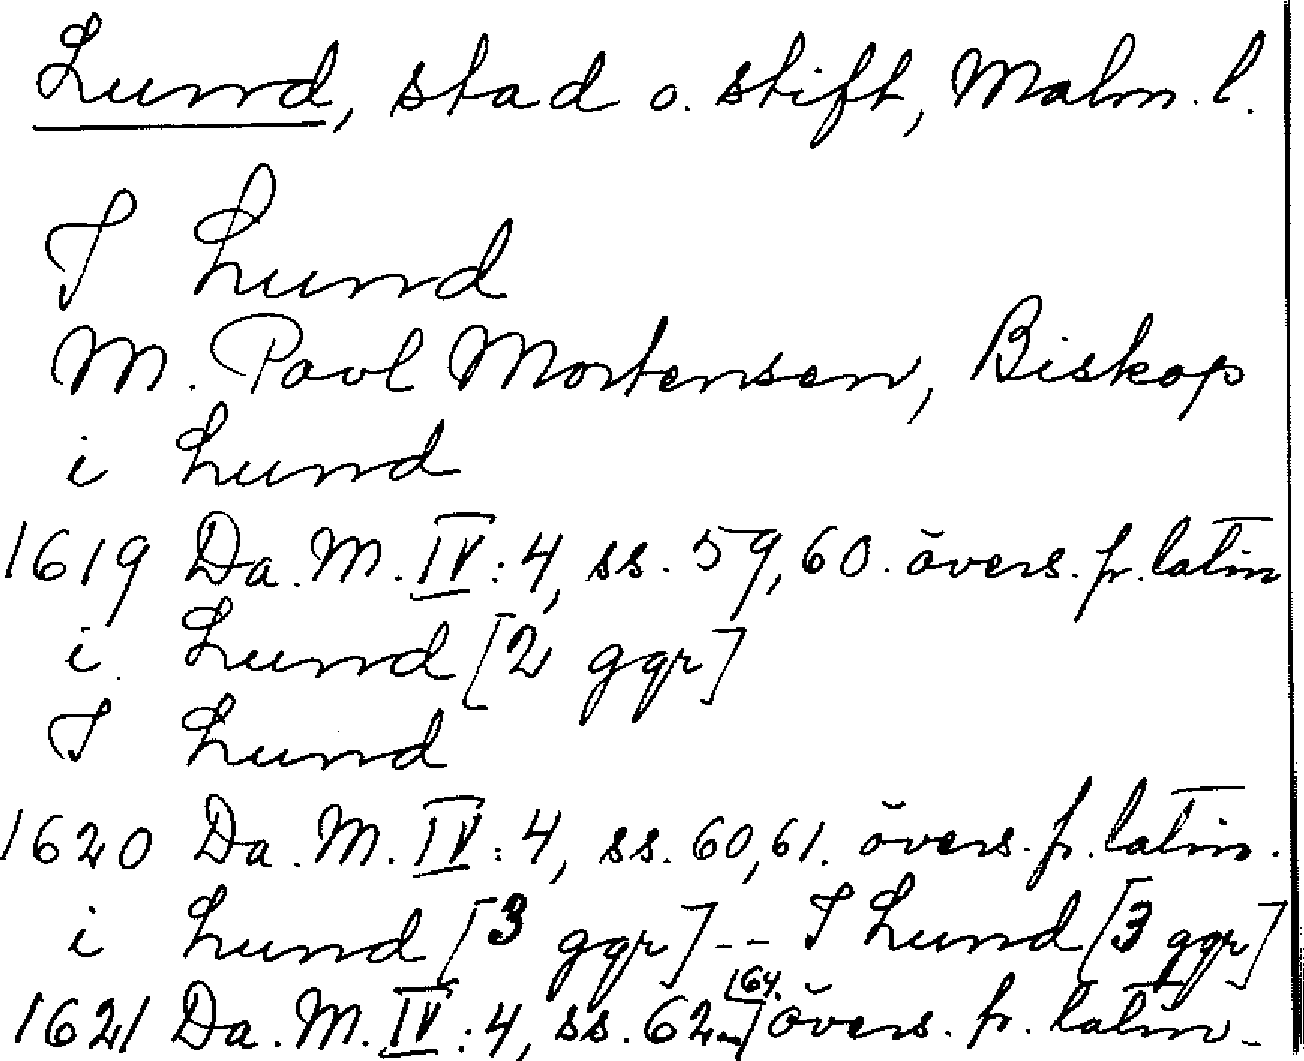 Lund, stad o. stift, Malm. l.
I Lund
M. Povl Mortensen, Biskop
i Lund
1619 Da. M. IV: 4, ss. 59, 60. övers. fr. latin
i Lund [2 ggr]
I Lund
1620 Da. M. IV: 4, ss. 60, 61. övers. fr. latin.
i Lund [3 ggr] -- I Lund [3 ggr]
1621 Da. M. IV: 4, ss. 62-64. övers. fr. latin.